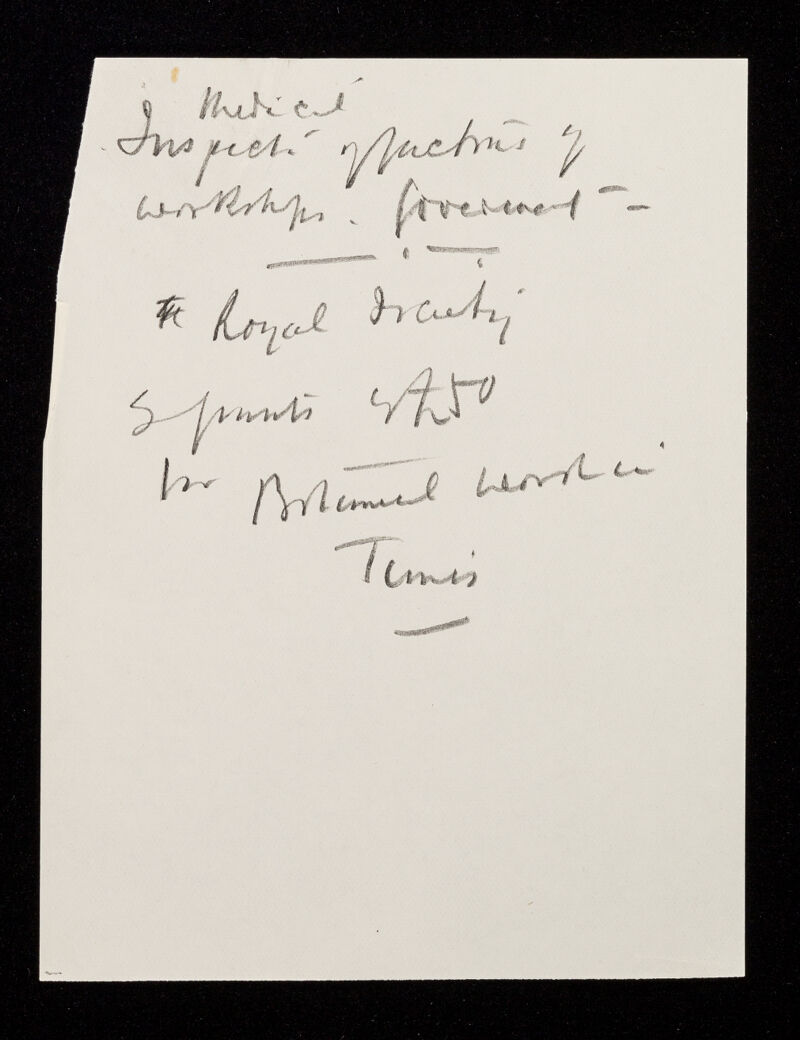 Medical
Inspectr of factories &
workshops. Government -
Royal Society
5 grants of £50
for Botanical work in
Tunis